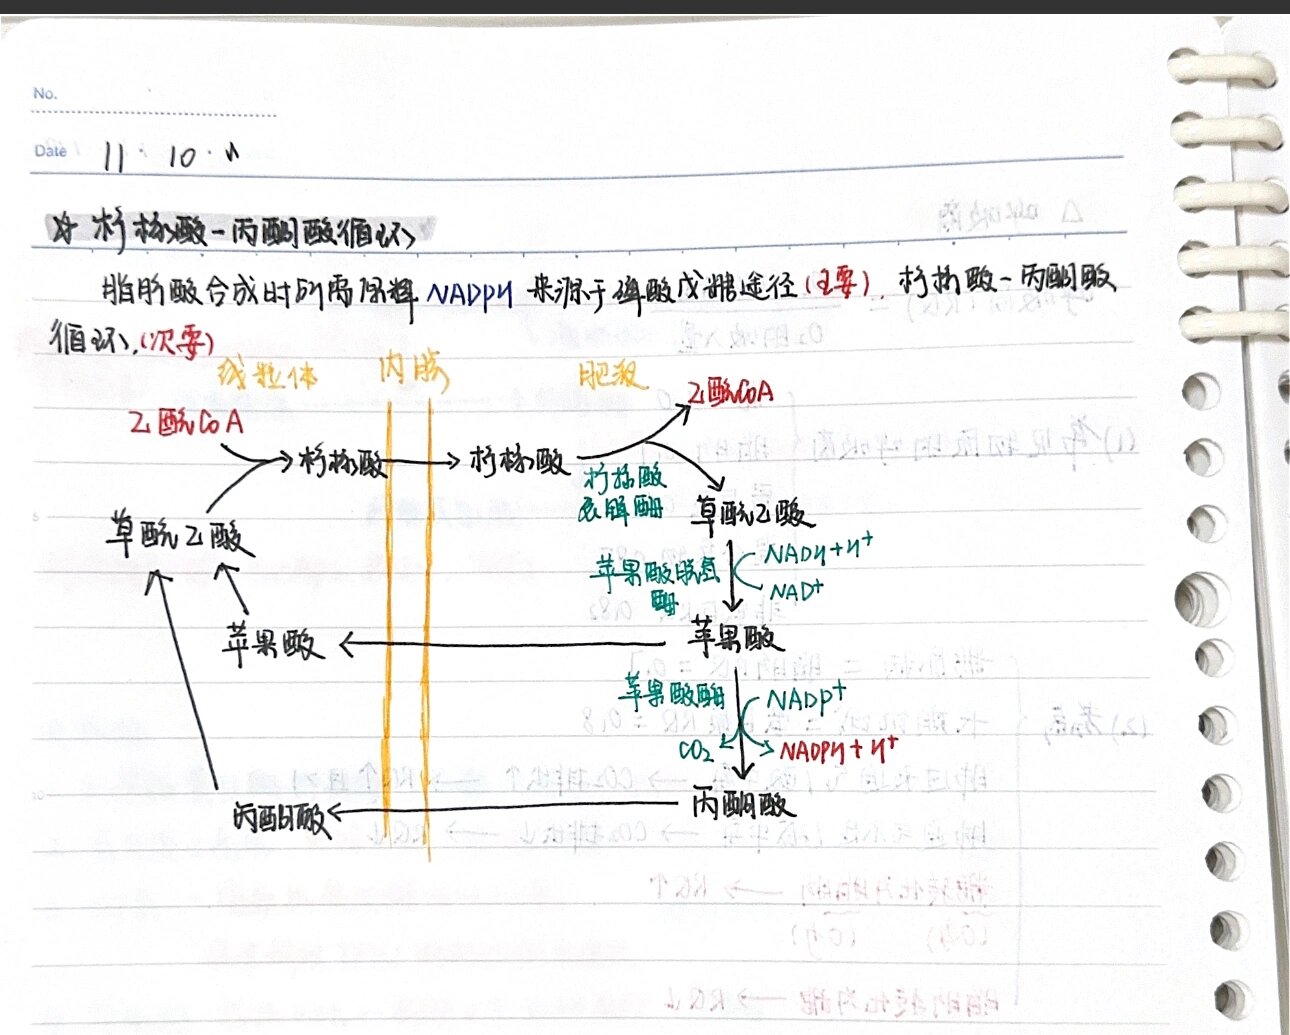 No.
Date 11 · 10 ·
☆ 柠檬酸-丙酮酸循环
脂肪酸合成时所需原料 NADPH 来源于磷酸戊糖途径(主要). 柠檬酸-丙酮酸
循环.(次要)
线粒体 内膜 胞浆
乙酰CoA 乙酰CoA
柠檬酸 柠檬酸
柠檬酸
裂解酶
草酰乙酸 草酰乙酸
苹果酸脱氢
酶
NADH+H+
NAD+
苹果酸 苹果酸
苹果酸酶 NADP+
CO2 NADPH+H+
丙酮酸 丙酮酸